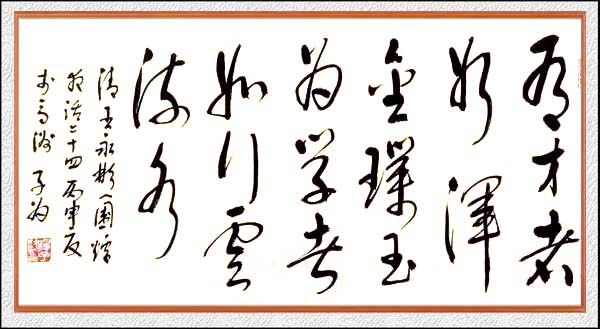 有才者
如浑
金璞玉
为学者
如行云
流水
清王永彬围炉
夜话二十四丙申夏
子为